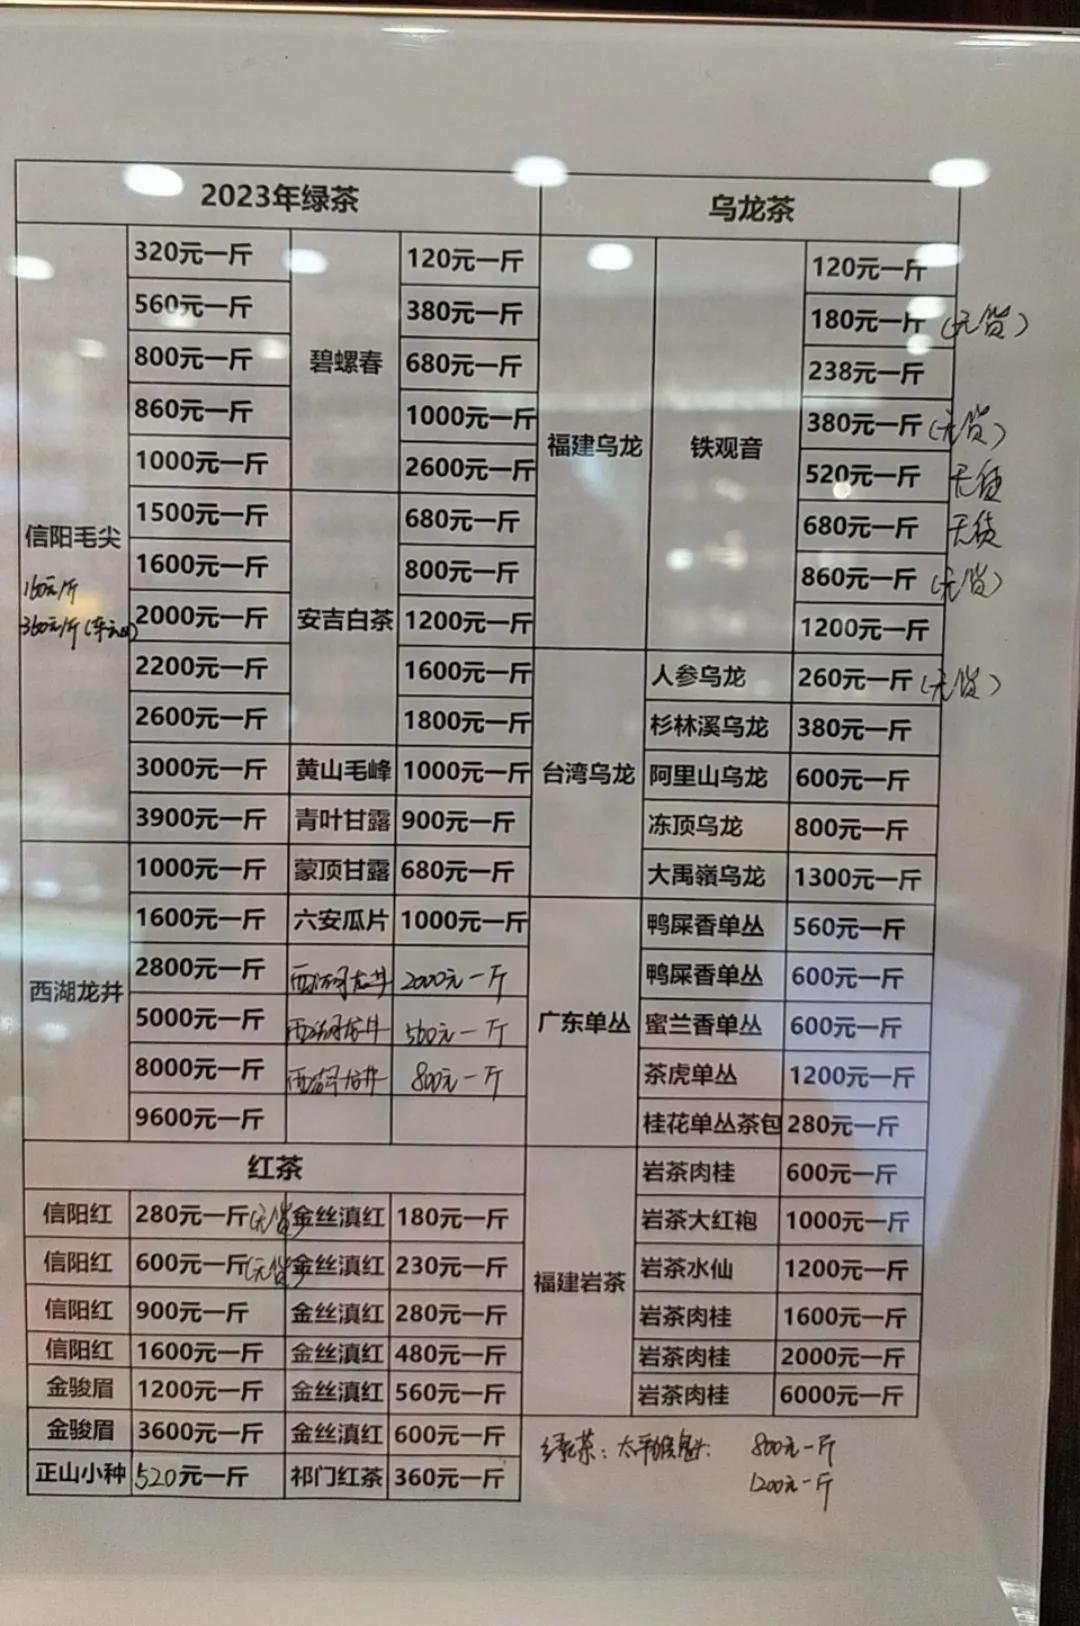 2023年绿茶 乌龙茶
信阳毛尖
160元/斤
360元/斤(车云山)
320元一斤
560元一斤
800元一斤
860元一斤
1000元一斤
1500元一斤
1600元一斤
2000元一斤
2200元一斤
2600元一斤
3000元一斤
3900元一斤
西湖龙井
1000元一斤
1600元一斤
2800元一斤
5000元一斤
8000元一斤
9600元一斤
碧螺春
120元一斤
380元一斤
680元一斤
1000元一斤
2600元一斤
安吉白茶
680元一斤
800元一斤
1200元一斤
1600元一斤
1800元一斤
黄山毛峰 1000元一斤
青叶甘露 900元一斤
蒙顶甘露 680元一斤
六安瓜片 1000元一斤
西湖龙井 2000元一斤
西湖龙井 560元一斤
西湖龙井 800元一斤
福建乌龙
铁观音
120元一斤
180元一斤(无货)
238元一斤
380元一斤(无货)
520元一斤 无货
680元一斤 无货
860元一斤(无货)
1200元一斤
台湾乌龙
人参乌龙 260元一斤(无货)
杉林溪乌龙 380元一斤
阿里山乌龙 600元一斤
冻顶乌龙 800元一斤
大禹嶺乌龙 1300元一斤
广东单丛
鸭屎香单丛 560元一斤
鸭屎香单丛 600元一斤
蜜兰香单丛 600元一斤
茶虎单丛 1200元一斤
桂花单丛茶包 280元一斤
福建岩茶
岩茶肉桂 600元一斤
岩茶大红袍 1000元一斤
岩茶水仙 1200元一斤
岩茶肉桂 1600元一斤
岩茶肉桂 2000元一斤
岩茶肉桂 6000元一斤
红茶
信阳红 280元一斤(无货) 金丝滇红 180元一斤
信阳红 600元一斤(无货) 金丝滇红 230元一斤
信阳红 900元一斤 金丝滇红 280元一斤
信阳红 1600元一斤 金丝滇红 480元一斤
金骏眉 1200元一斤 金丝滇红 560元一斤
金骏眉 3600元一斤 金丝滇红 600元一斤
正山小种 520元一斤 祁门红茶 360元一斤
绿茶:太平猴魁: 800元一斤
1200元一斤